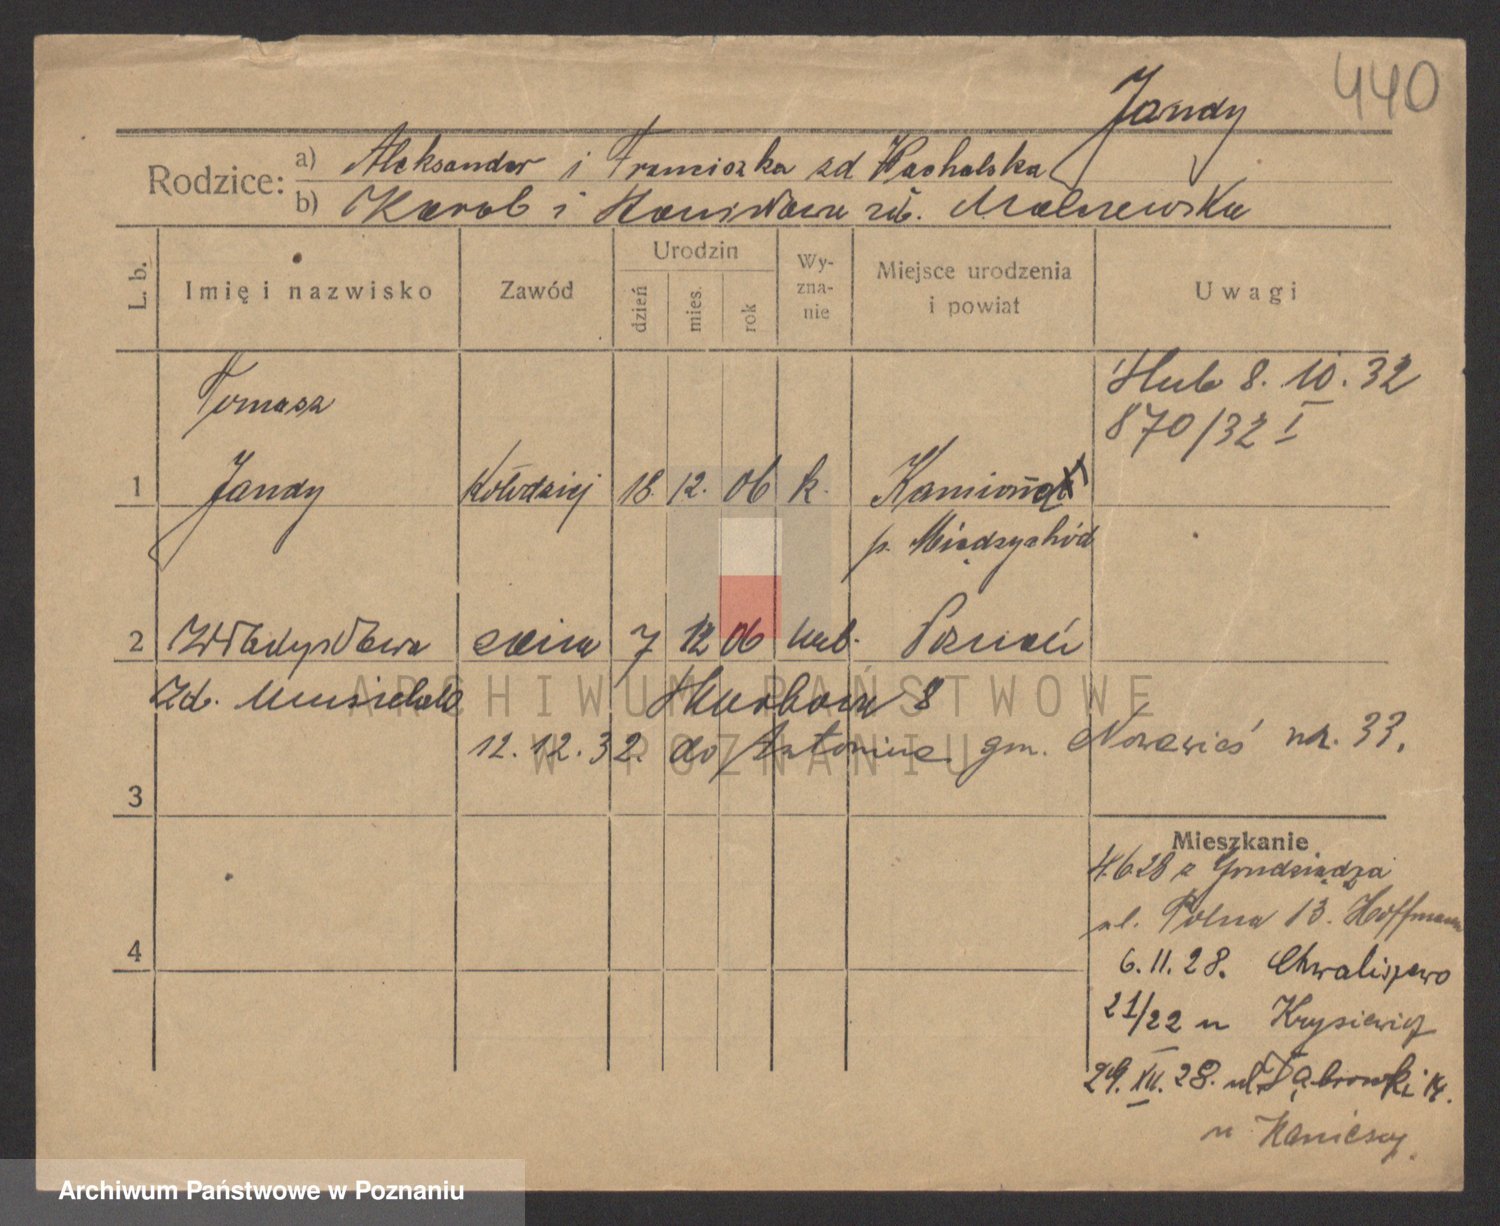 440
Jandy
Rodzice: a) Aleksander i Franciszka zd Wacholska
b) Karol i Stanisława zd. Malczewska
L. b. Imię i nazwisko Zawód Urodzin Wy-zna-nie Miejsce urodzenia i powiat Uwagi
dzień mies. rok
Ślub 8. 10. 32
870/32 I
Tomasz
1 Jandy Kołodziej 18. 12. 06 k. Kamionna
p. Międzychód
2 Władysława żona 7 12 06 kat. Poznań
zd. Musichał 8
12. 12. 32. do Antonina gm. Nowawieś nr. 33.
3
Mieszkanie
4.6.28 z Grudziądza
ul. Polna 13. Hoffmann
4
6. 11. 28. Chwaliszewo
21/22 u Krysiewicz
29. XII. 28. ul. Dąbrowski 14.
u
ARCHIWUM PAŃSTWOWE
W POZNANIU
Archiwum Państwowe w Poznaniu